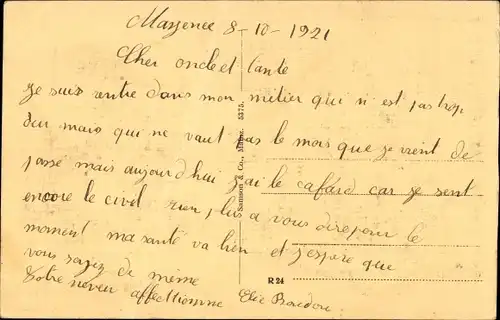 Mayence 8-10-1921
Cher oncle et tante
Je suis rentre dans mon métier qui n est pas trop
dur mais qui ne vaut pas le mois que je vient de
passé mais aujourd'hui j'ai le cafard car je sent
encore le civel rien plus a vous dire pour le
moment ma santé va bien et j'espere que
vous soyez de même
Votre neveu affectionne Elie
Samson & Co., 5375.
R 24